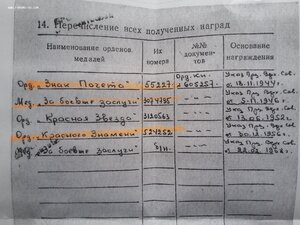 14. Перечисление всех полученных наград
Наименование орденов
медалей
Их
номера
№№
докумен-
тов
Основание
награждения
Орд. „Знак Почета"
55227
Орд. Кн.
605257.
Указ През. Верх. Сов.
от 18.11.1944г.
Мед. „За боевые заслуги"
3077785
---
Указ През. Верх. Сов.
от 5.11.1946г.
Орд. „Красная Звезда"
3120563
---
Указ През. Верх. Сов.
от 13.06.1952г.
Орд. „Красного Знамени"
524252
---
Указ През. Верх. Сов.
от 30.12.1956г.
„За боевые заслуги"
б/н.
---
Указ През. Верх. Сов.
от 22.02.1968г.